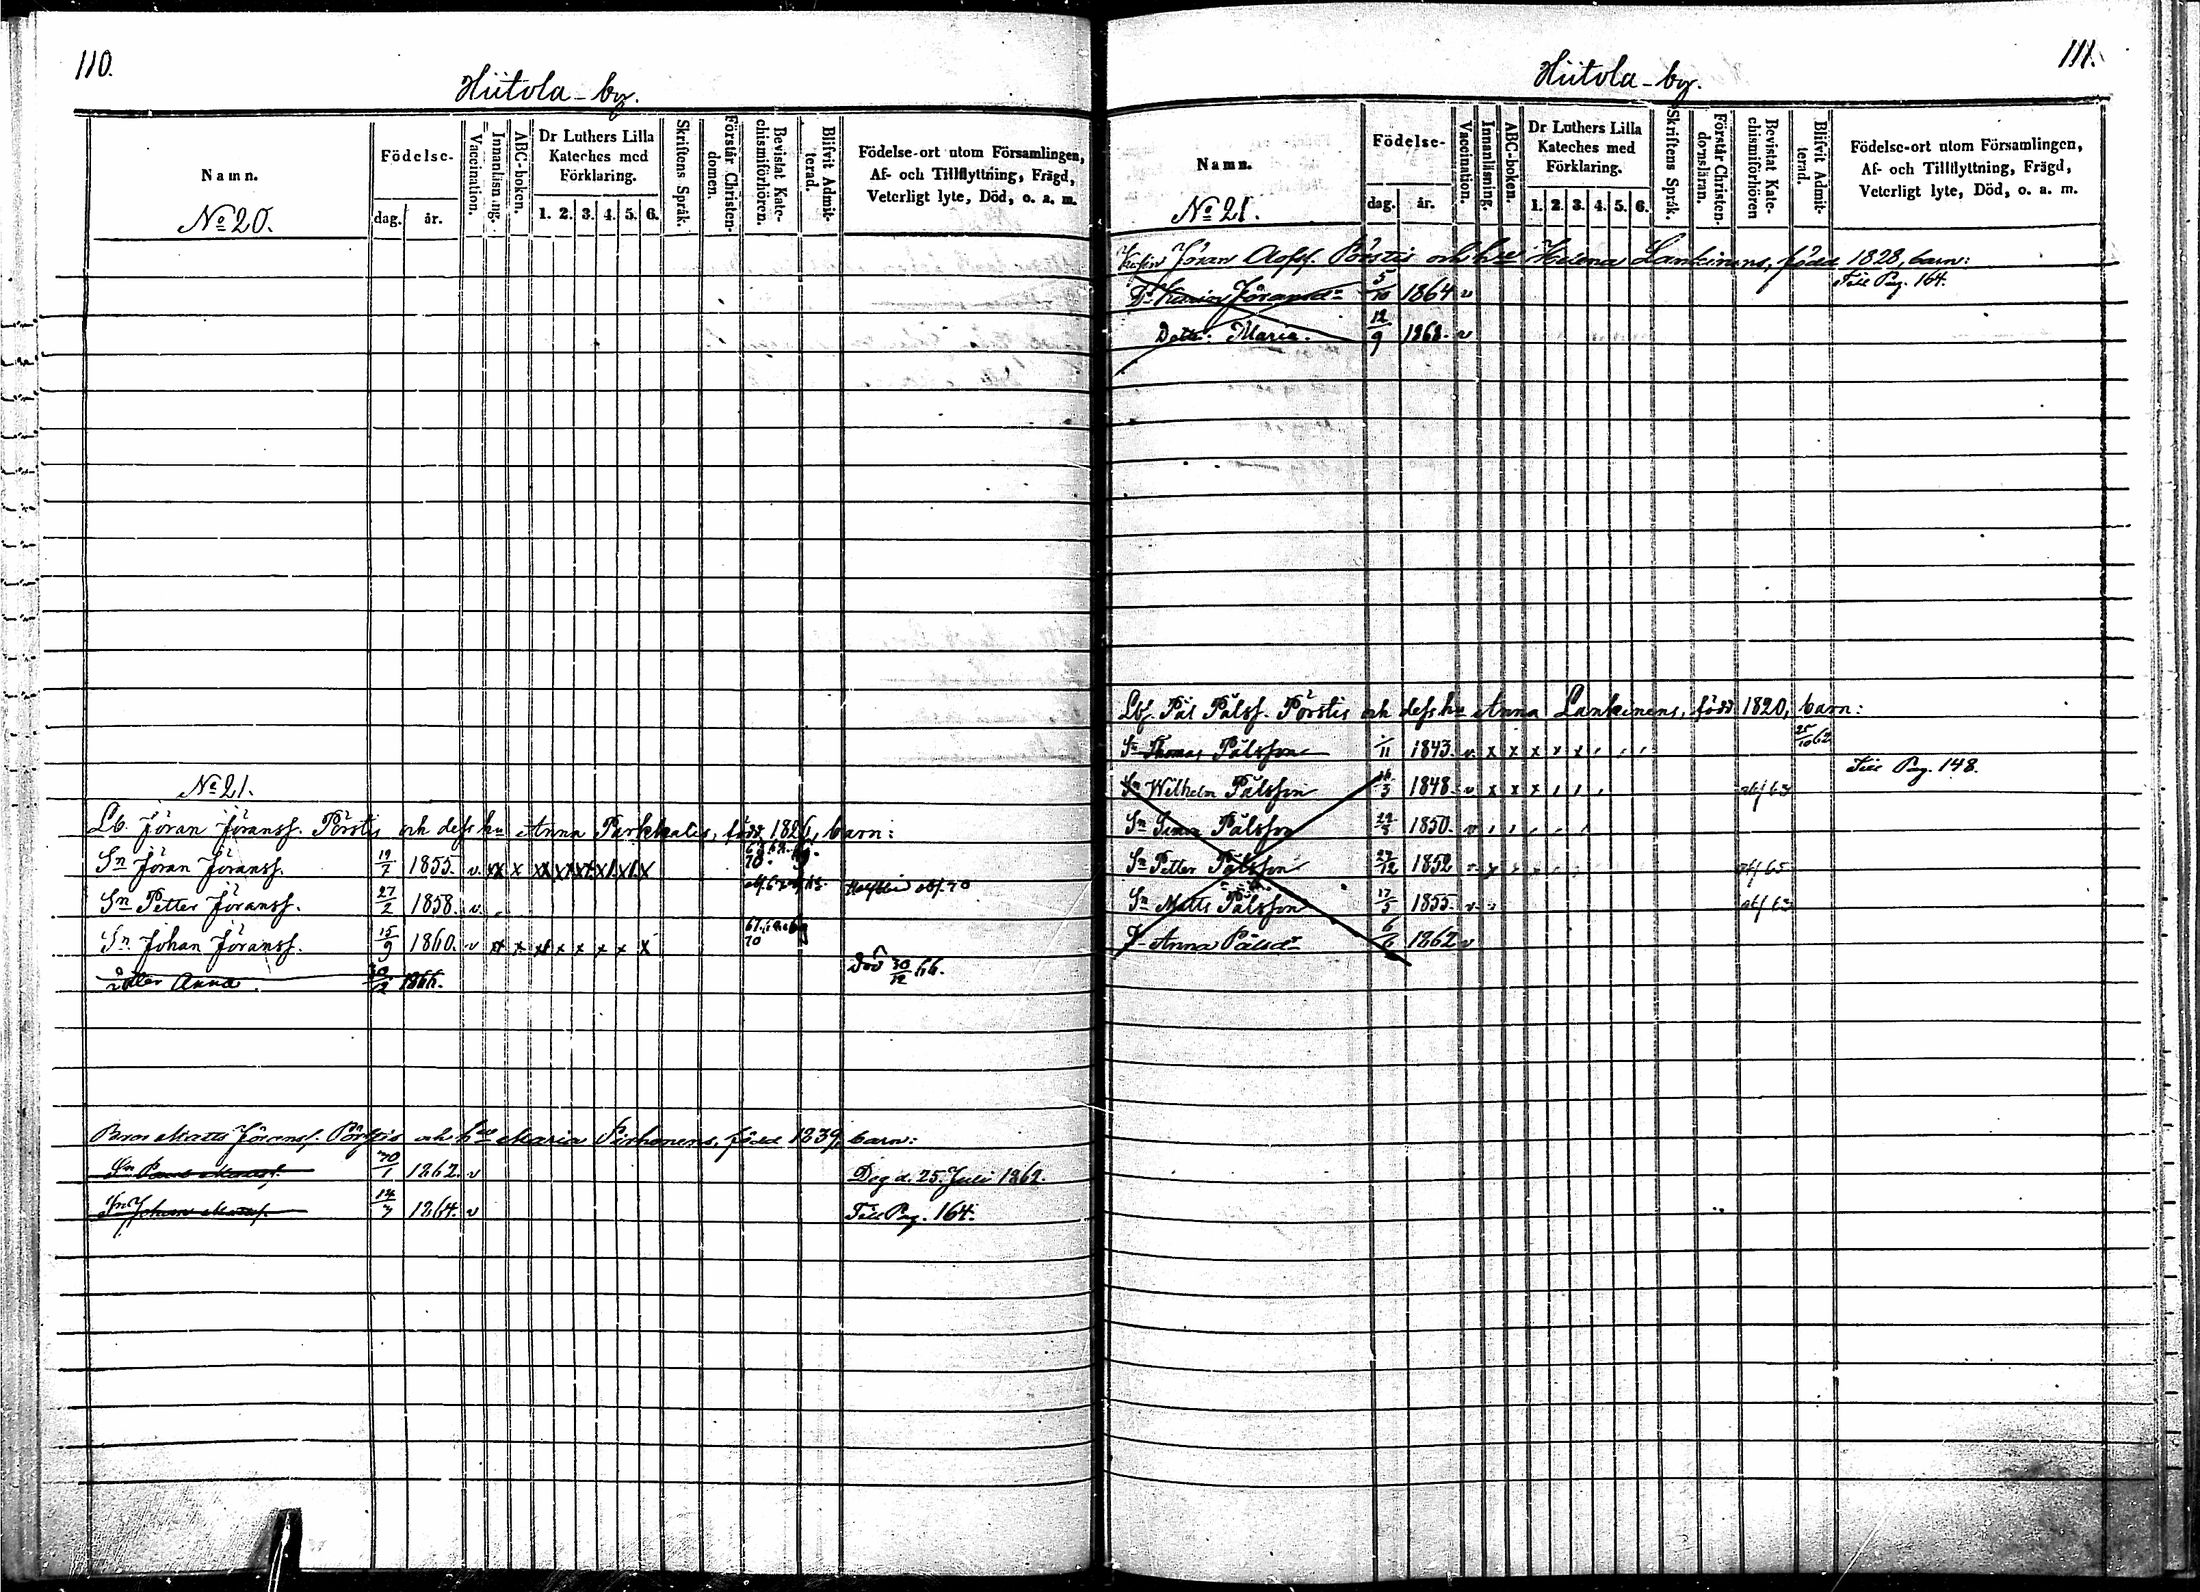 110.
Hiitola-by.
Namn.
No 20.
Födelse-
dag. år.
Vaccination.
Innanläsning.
ABC-boken.
Dr Luthers Lilla Kateches med Förklaring.
1. 2. 3. 4. 5. 6.
Skriftens Språk.
Förstår Christendomen.
Bevistat Katechismiförhören.
Blifvit Admitterad.
Födelse-ort utom Församlingen,
Af- och Tillflyttning, Frägd,
Veterligt lyte, Död, o. a. m.
No 21.
Lb. Jöran Jöranss. Pörstis och dess hu Anna Parkkalis, född 1826, barn:
Sn Jöran Jöranss. 19/7 1855. v. xx x xx xx xx x x x 70.
Sn Petter Jöranss. 27/2 1858. v.
Sn Johan Jöranss. 15/9 1860. v x x x x x x x x 70
Dotter Anna 1866. Död 30/12 66.
Matts Jöranss. Pörstis och hu Maria född 1839, barn:
Sn 30/1 1862. v Dog d. 25 Juli 1862.
Sn Johan Matss. 14/3 1264. v Till Pag. 164.
111.
Hiitola-by.
Namn.
No 21.
Födelse-
dag. år.
Vaccination.
Innanläsning.
ABC-boken.
Dr Luthers Lilla Kateches med Förklaring.
1. 2. 3. 4. 5. 6.
Skriftens Språk.
Förstår Christendomsläran.
Bevistat Katechismiförhören
Blifvit Admitterad.
Födelse-ort utom Församlingen,
Af- och Tillflyttning, Frägd,
Veterligt lyte, Död, o. a. m.
Jöran Pörstis och hu Helena Lankinens, född 1828, barn:
Dr Jöransdr 5/10 1864 v Till Pag. 164.
Dotter Maria. 12/9 1868. v
Lb. Pål Pålss. Pörstis och dess hu Anna Lankinens, född 1820, barn:
Sn Thomas Pålsson /11 1843. v. x x x x x 25/10 62
Till Pag. 148.
Sn Wilhelm Pålsson 1848. v x x x
Sn Simon Pålsson 1850. v
Sn Petter Pålsson 27/12 1852
Sn Matts Pålsson 17/5 1855.
D Anna Pålsdr 6/6 1862 v